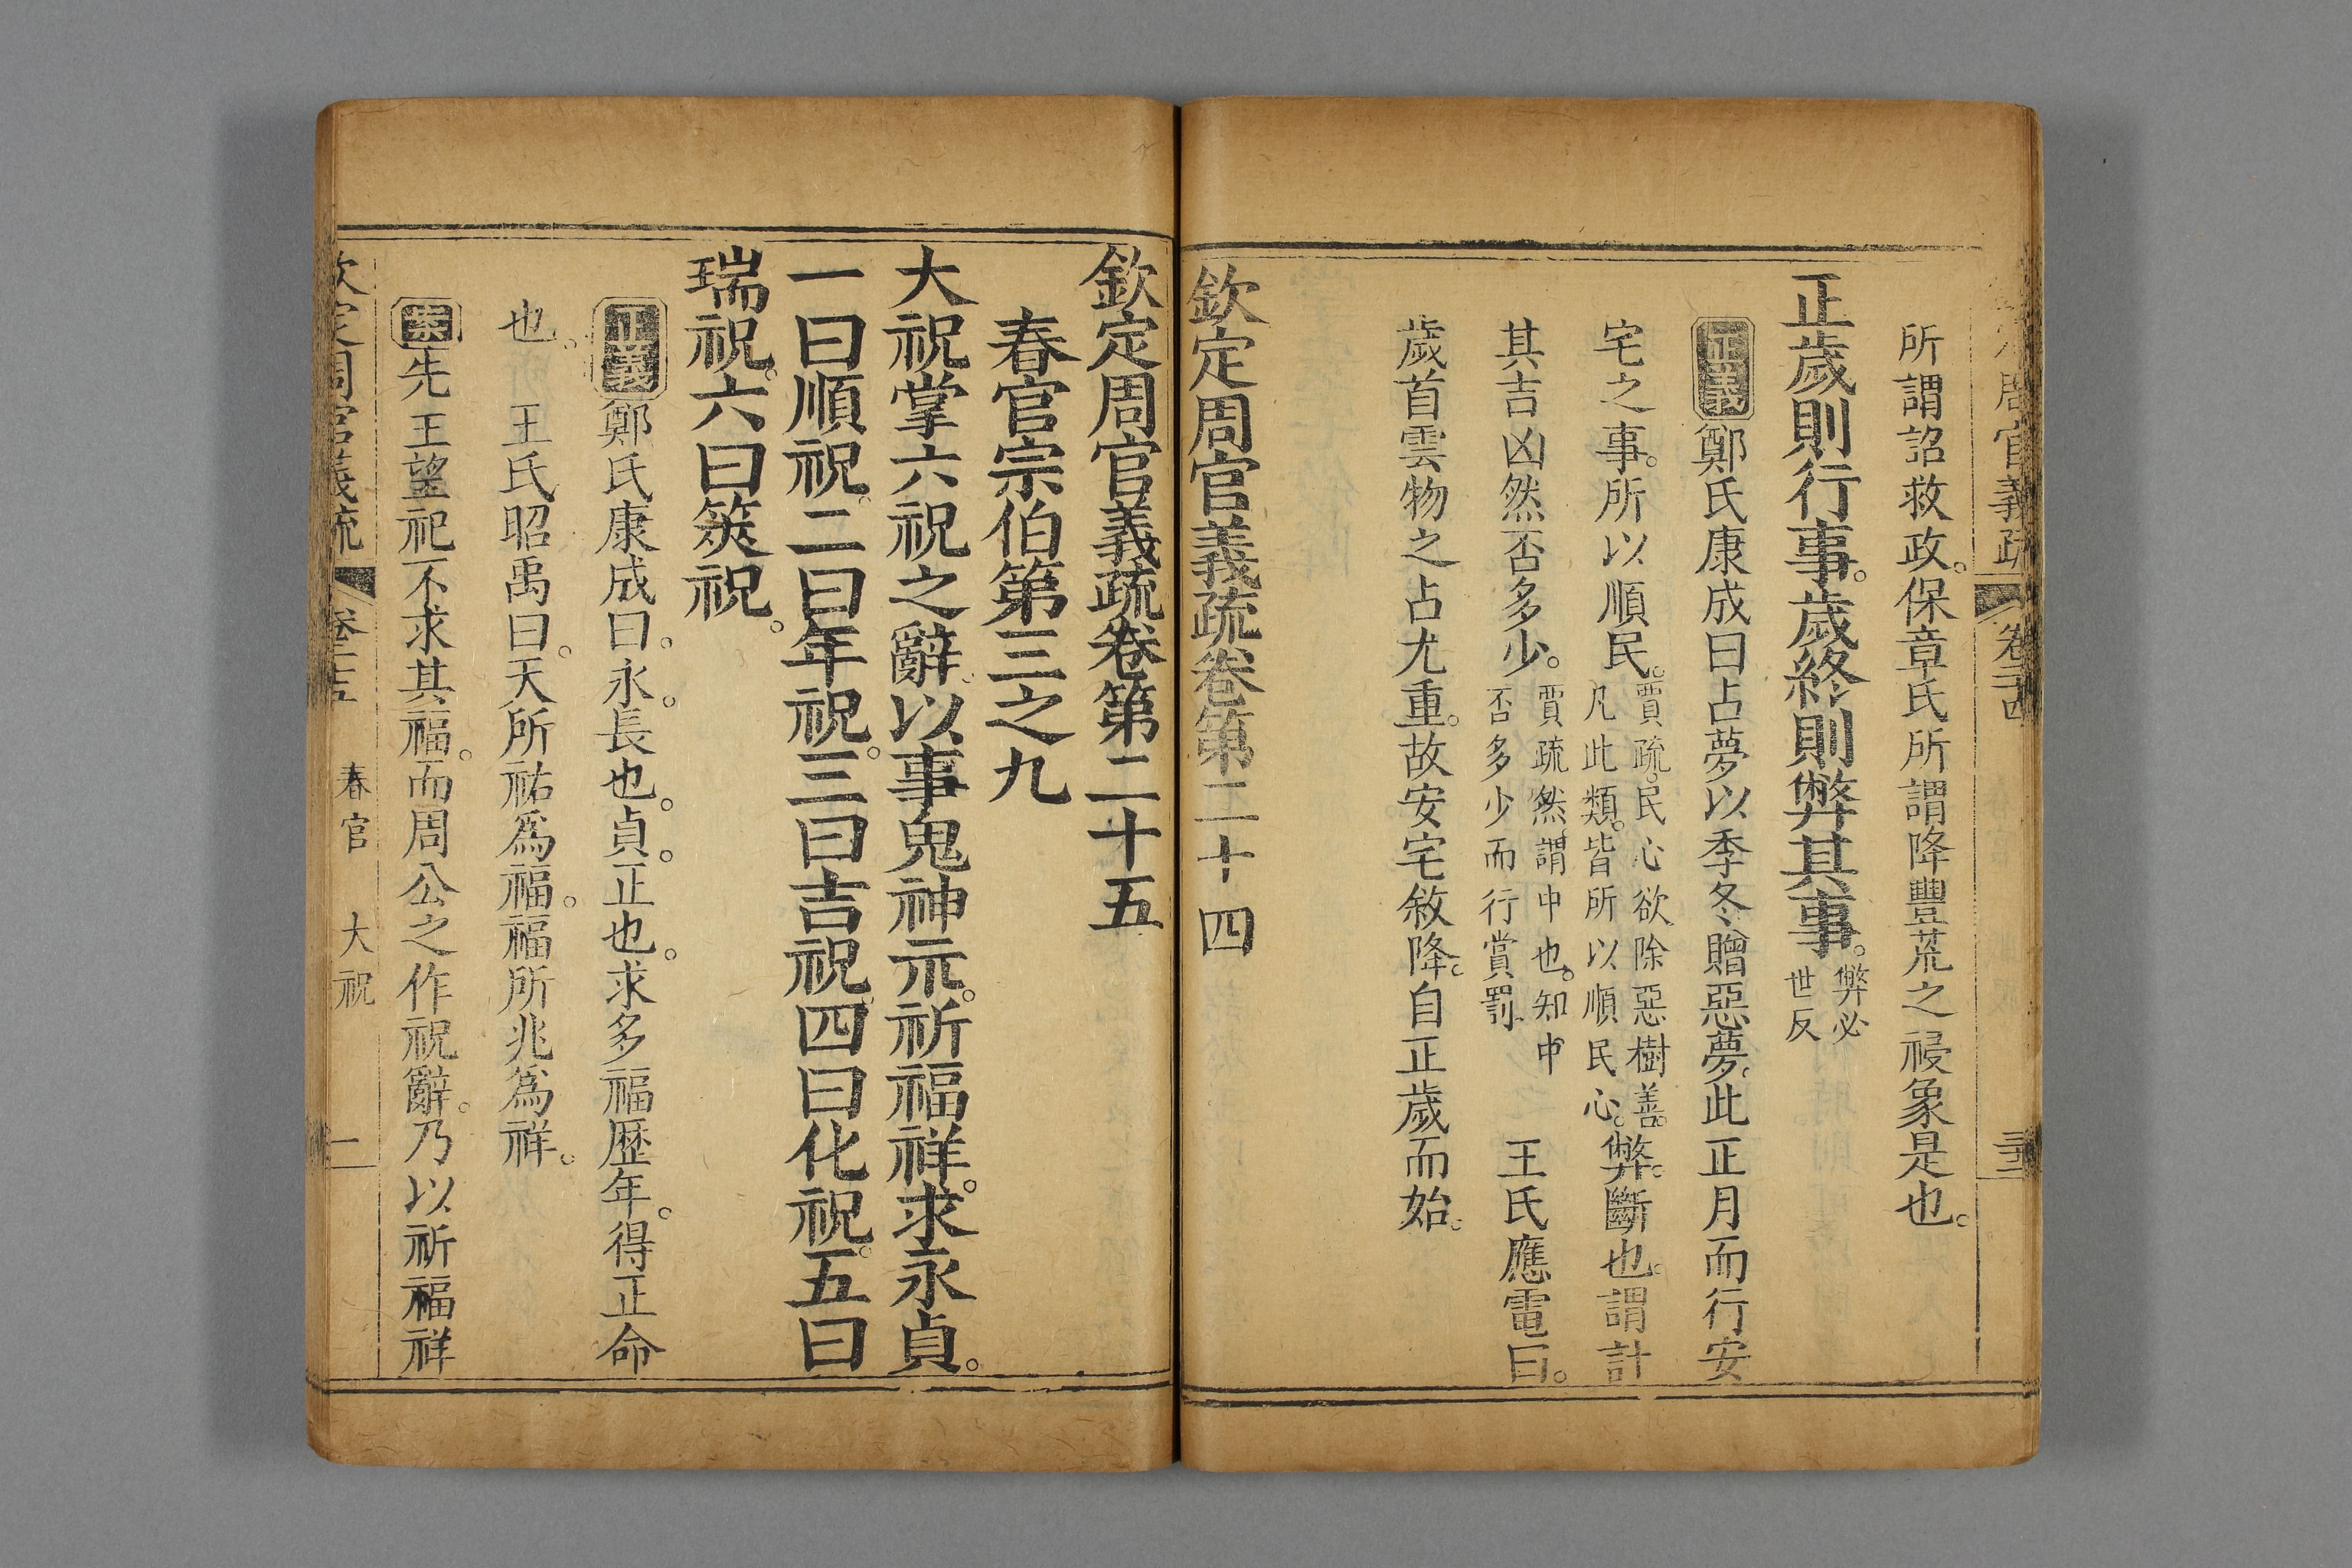 所謂詔救政。保章氏所謂降豐荒之祲象是也。
正歲則行事。歲終則弊其事。弊必世反
正義鄭氏康成曰占夢以季冬贈惡夢。此正月而行安
宅之事。所以順民。賈疏。民心欲除惡樹善。凡此類。皆所以順民心。弊。斷也。謂計
其吉凶然否多少。賈疏然。謂中也。知中否多少而行賞罰 王氏應電曰。
歲首雲物之占尤重。故安宅敘降。自正歲而始。
欽定周官義疏卷第二十四
欽定周官義疏卷第二十五
春官宗伯第三之九
大祝掌六祝之辭。以事鬼神示。祈福祥。求永貞。
一曰順祝。二曰年祝。三曰吉祝。四曰化祝。五曰
瑞祝。六曰筴祝。
正義鄭氏康成曰。永。長也。貞。正也。求多福歷年。得正命
也。 王氏昭禹曰。天所祐爲福。福所兆爲祥。
案先王望祀不求其福。而周公之作祝辭。乃以祈福祥
欽定周官義疏 卷二十五 春官 大祝 一